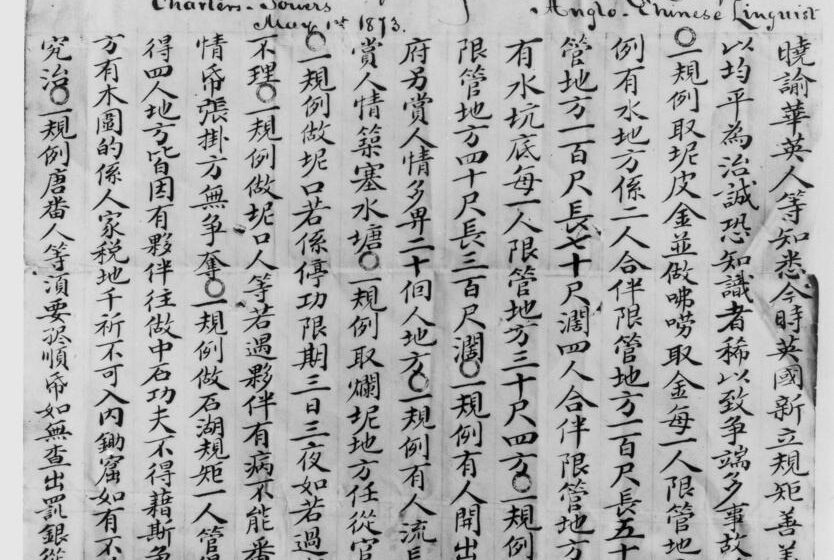 Charters Towers
Anglo-Chinese Linguist
May 1st 1873.
曉諭華英人等知悉今時英國新立規矩善
以均平為治誠恐知識者稀以致爭端多事故
〇一規例取坭皮金並做咈嘮取金每一人限管地
例有水地方係二人合伴限管地方一百尺長五十
管地方一百尺長七十尺濶四人合伴限管地方
有水坑底每一人限管地方三十尺四方〇一規例
限管地方四十尺長三百尺濶〇一規例有人開出
府另賞人情多畀二十個人地方〇一規例有人流
賞人情築塞水塘〇一規例取爛坭地方任從官
〇一規例做坭口若係停功限期三日三夜如若過
不理〇一規例做坭口人等若遇夥伴有病不能番
情帋張掛方無爭奪〇一規例做石湖規矩一人管
得四人地方皆因有夥伴往做中石功夫不得藉斯爭
方有木圍的係人家税地千祈不可入內鋤窟如有不
究治〇一規例唐畨人等須要順帋如無查出罰銀從